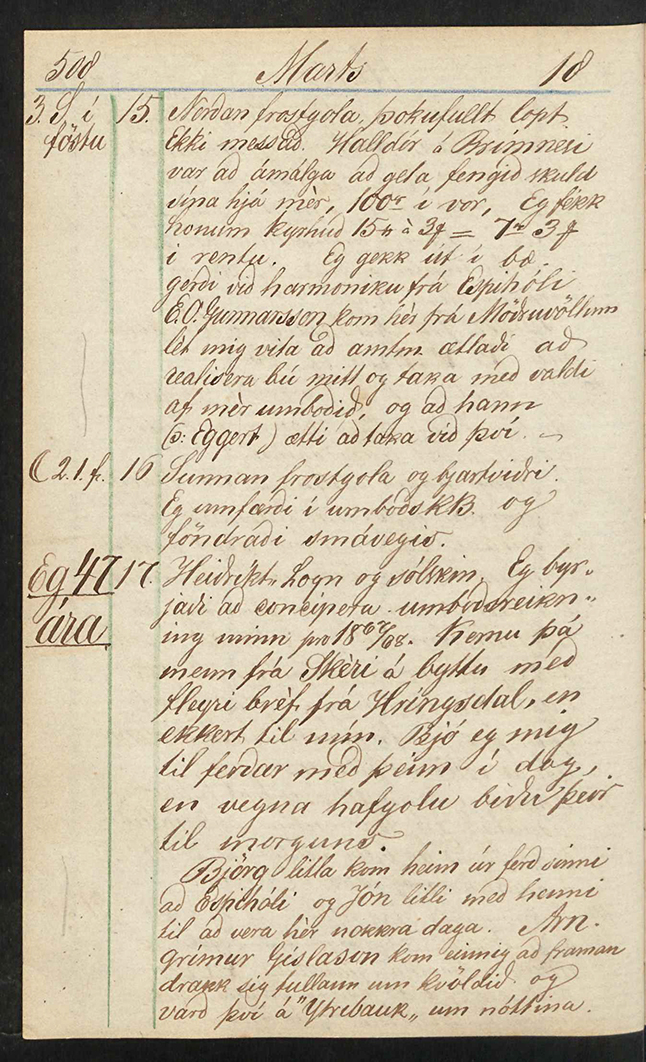 508 Marts 18
3. S. í 15. Norðan frostgola, þokufullt lopt.
föstu Ekki messað. Halldór á Brimnesi
var að ámálga að geta fengið skuld
sína hjá mèr, 100r í vor, Eg fékk
honum kýrhúð 15 à 3 = 7 3
i rentu. Eg gekk út í bæ.
gerði við harmoniku frá Espihóli
E.O. Gunnarsson kom hér frá Möðruvöllum
lét mig vita að amtm. ætlaði að
realisera bú mitt og taka með valdi
af mèr umboðið, og að hann
(ɔ: Eggert) ætti að taka við því. -
C 2.1.fr. 16 Sunnan frostgola og bjartviðri.
Eg umfærði í umboðskb. og
föndraði smávegis.
Eg 47 17. Heiðríkt, Logn og sólskin, Eg byr-
ára jaði að concipera umboðsreikn-
ing minn pro 1867/68. Komu þá
menn frá Skèri á byttu með
fleyri bréf frá Hringsdal, en
ekkert til mín. Bjó eg mig
til ferðar með þeim í dag,
en vegna hafgolu biðu þeir
til morguns.
Björg litla kom heim úr ferð sinni
að Espihóli og Jón litli með henni
til að vera hér nokkra daga. Arn-
grímur Gíslason kom einnig að framan
drakk sig fullann um kvöldið og
varð því á "Ytribauk„ um nóttina.